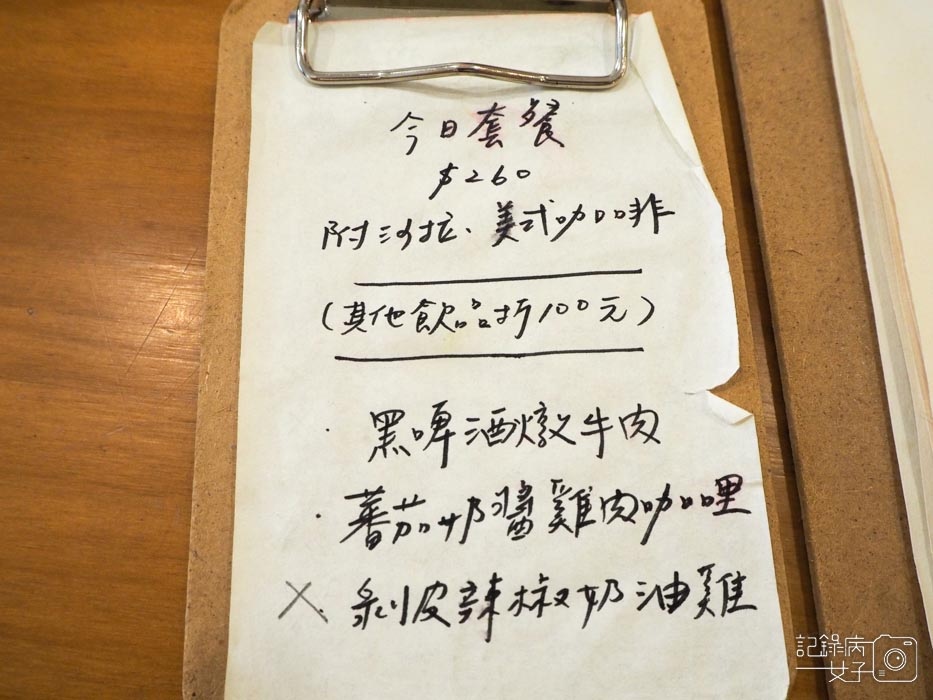 今日套餐
$260
附沙拉、美式咖啡
(其他飲品折100元)
·黑啤酒燉牛肉
·蕃茄奶醬雞肉咖哩
X·剝皮辣椒奶油雞
記錄病
女子